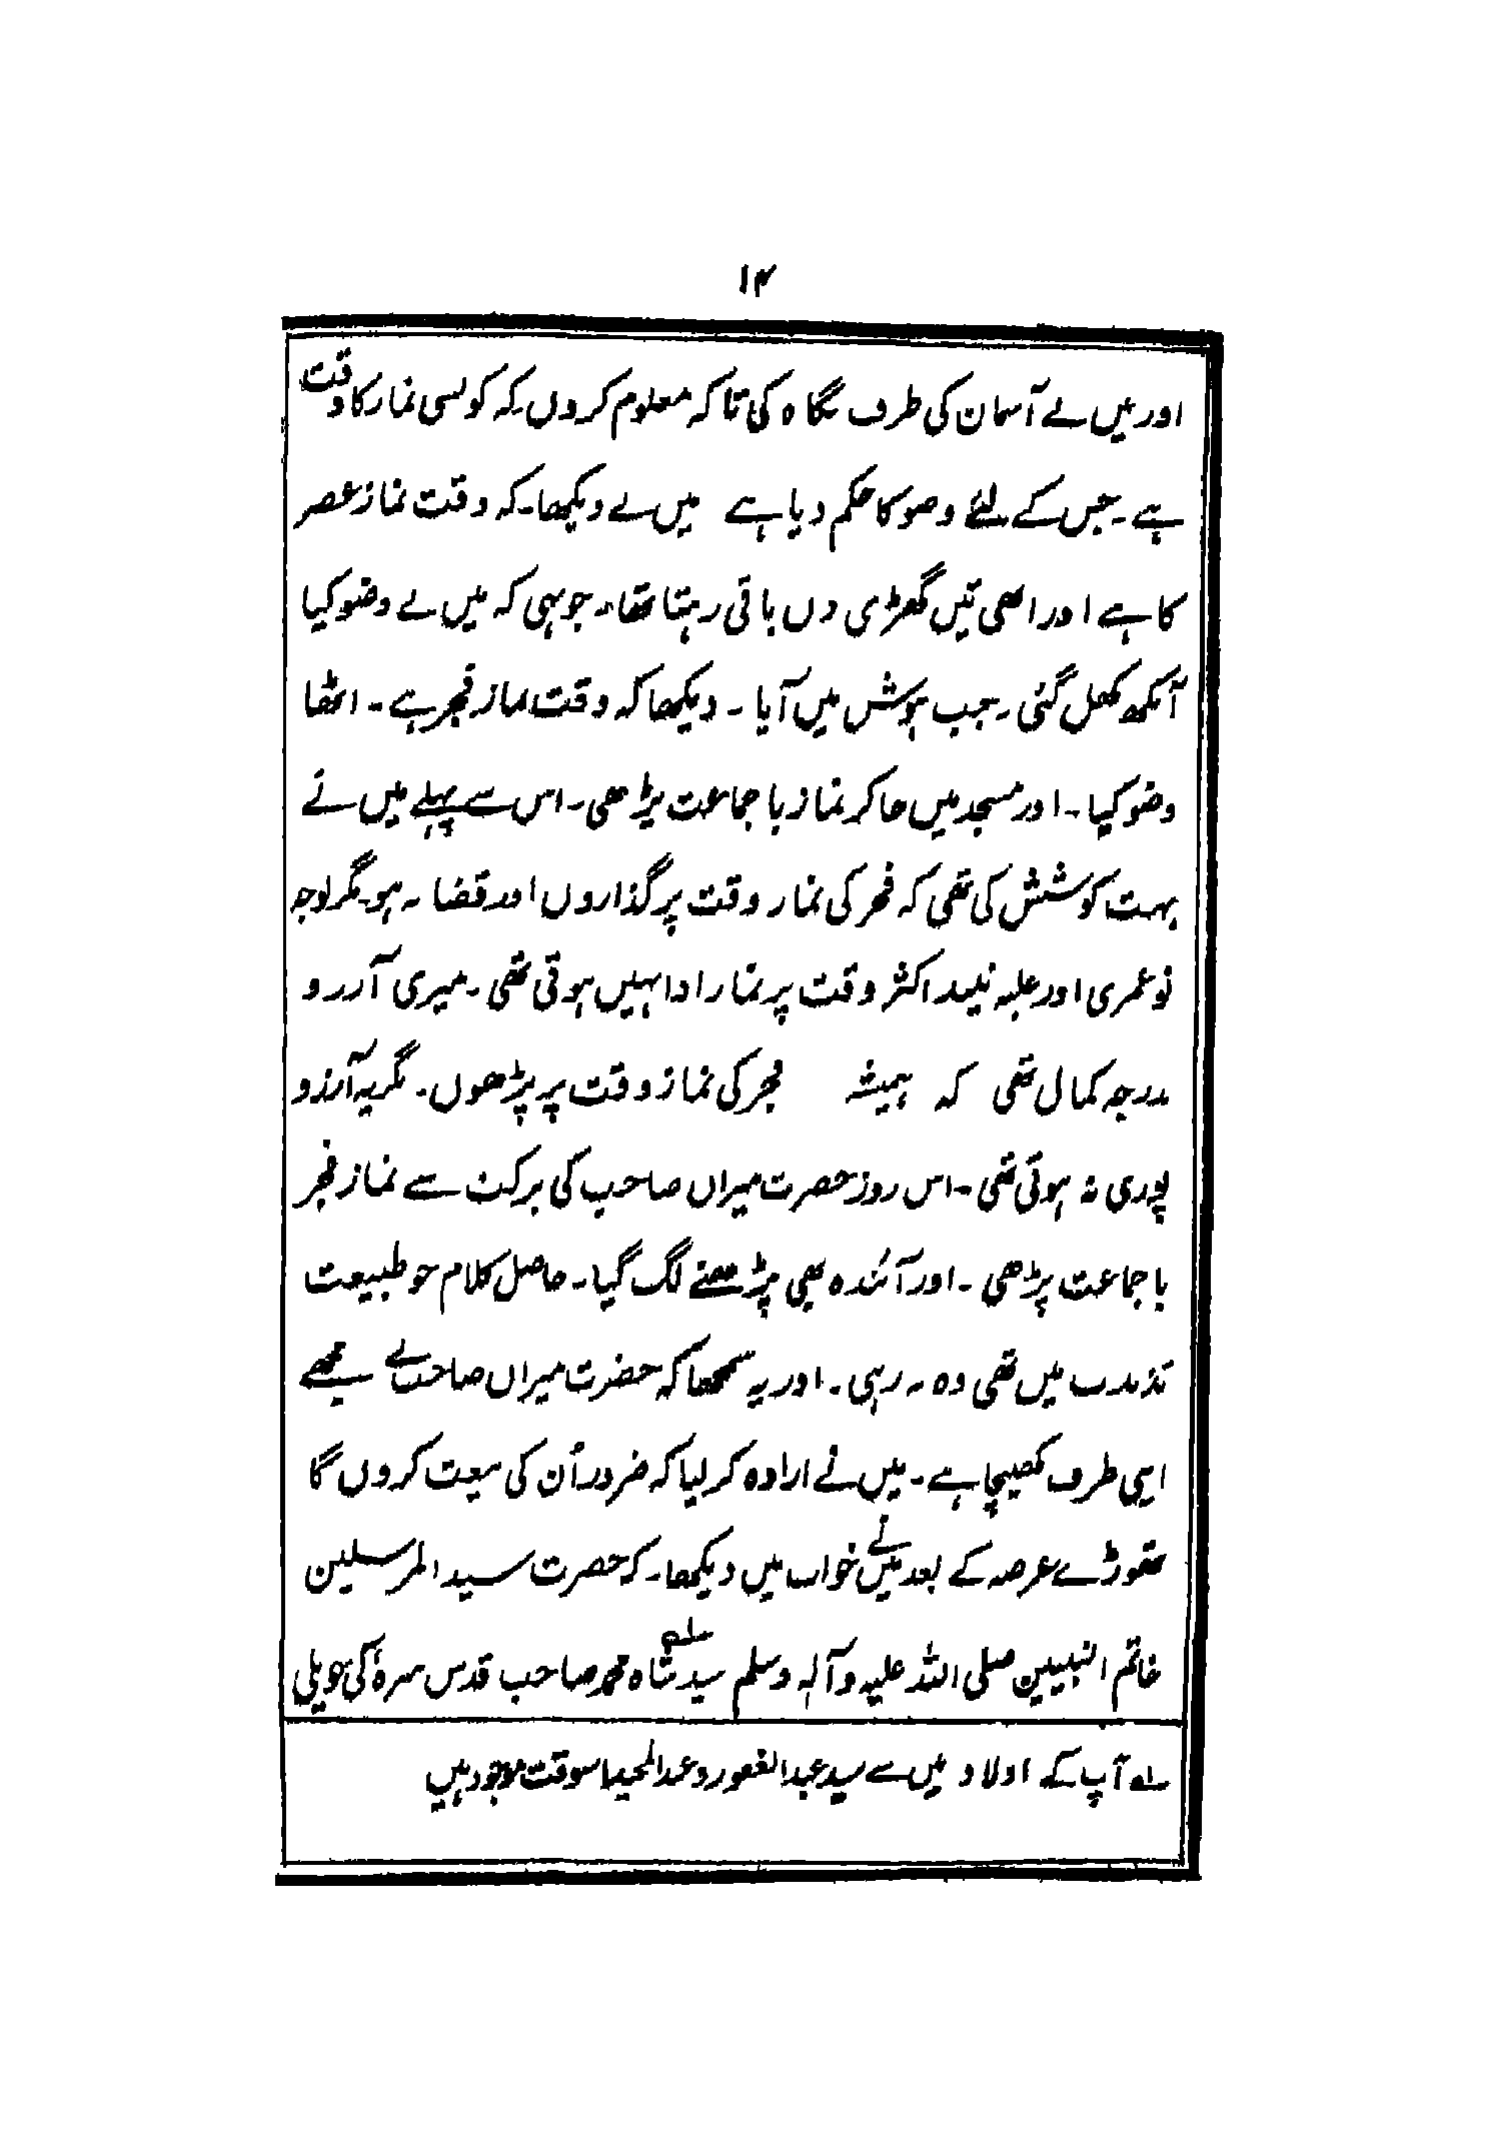 ۱۴
اور میں نے آسمان کی طرف نگاہ کی تاکہ معلوم کروں کہ کونسی نماز کا وقت
ہے۔ جس کے لئے وضو کا حکم دیا ہے میں نے دیکھا۔ کہ وقت نماز عصر
کا ہے اور ابھی تین گھڑی دن باقی رہتا تھا۔ جونہی کہ میں نے وضو کیا
آنکھ کھل گئی۔ جب ہوش میں آیا۔ دیکھا کہ وقت نماز فجر ہے۔ اٹھا
وضو کیا۔ اور مسجد میں جا کر نماز با جماعت پڑھی۔ اس سے پہلے میں نے
بہت کوشش کی تھی کہ فجر کی نماز وقت پر گذاروں اور قضا نہ ہو۔ مگر بوجہ
نوعمری اور غلبہ نیند اکثر وقت پر نماز ادا نہیں ہوتی تھی۔ میری آرزو
بدرجہ کمال تھی کہ ہمیشہ فجر کی نماز وقت پر پڑھوں۔ مگر یہ آرزو
پوری نہ ہوتی تھی۔ اس روز حضرت میراں صاحب کی برکت سے نماز فجر
با جماعت پڑھی۔ اور آئندہ بھی پڑھنے لگ گیا۔ حاصل کلام جو طبیعت
تذبذب میں تھی وہ نہ رہی۔ اور یہ سمجھا کہ حضرت میراں صاحب نے مجھے
اپنی طرف کھینچا ہے۔ میں نے ارادہ کر لیا کہ ضرور اُن کی بیعت کروں گا
تھوڑے عرصہ کے بعد میں نے خواب میں دیکھا۔ کہ حضرت سید المرسلین
خاتم النبیین صلی اللہ علیہ وآلہ وسلم سید شاہ محمد صاحب قدس سرہٗ کی حویلی
لہ آپ کے اولاد میں سے سید عبدالغفور و عبدالمجید اسوقت موجود ہیں